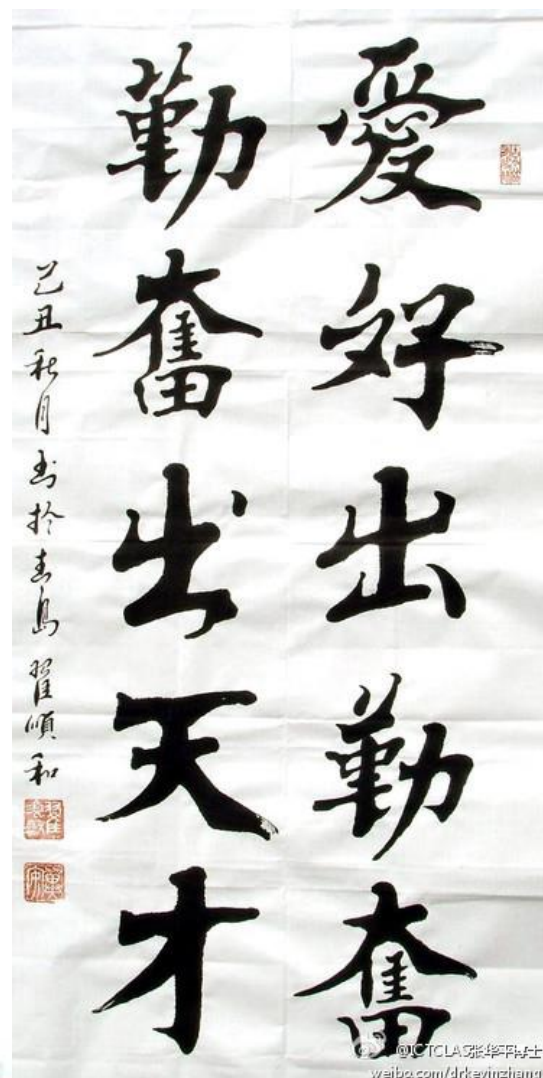 愛好出勤奮
勤奮出天才
己丑秋月书於青島 翟順和
@ICTCLAS张华平博士
weibo.com/drkevinzhang